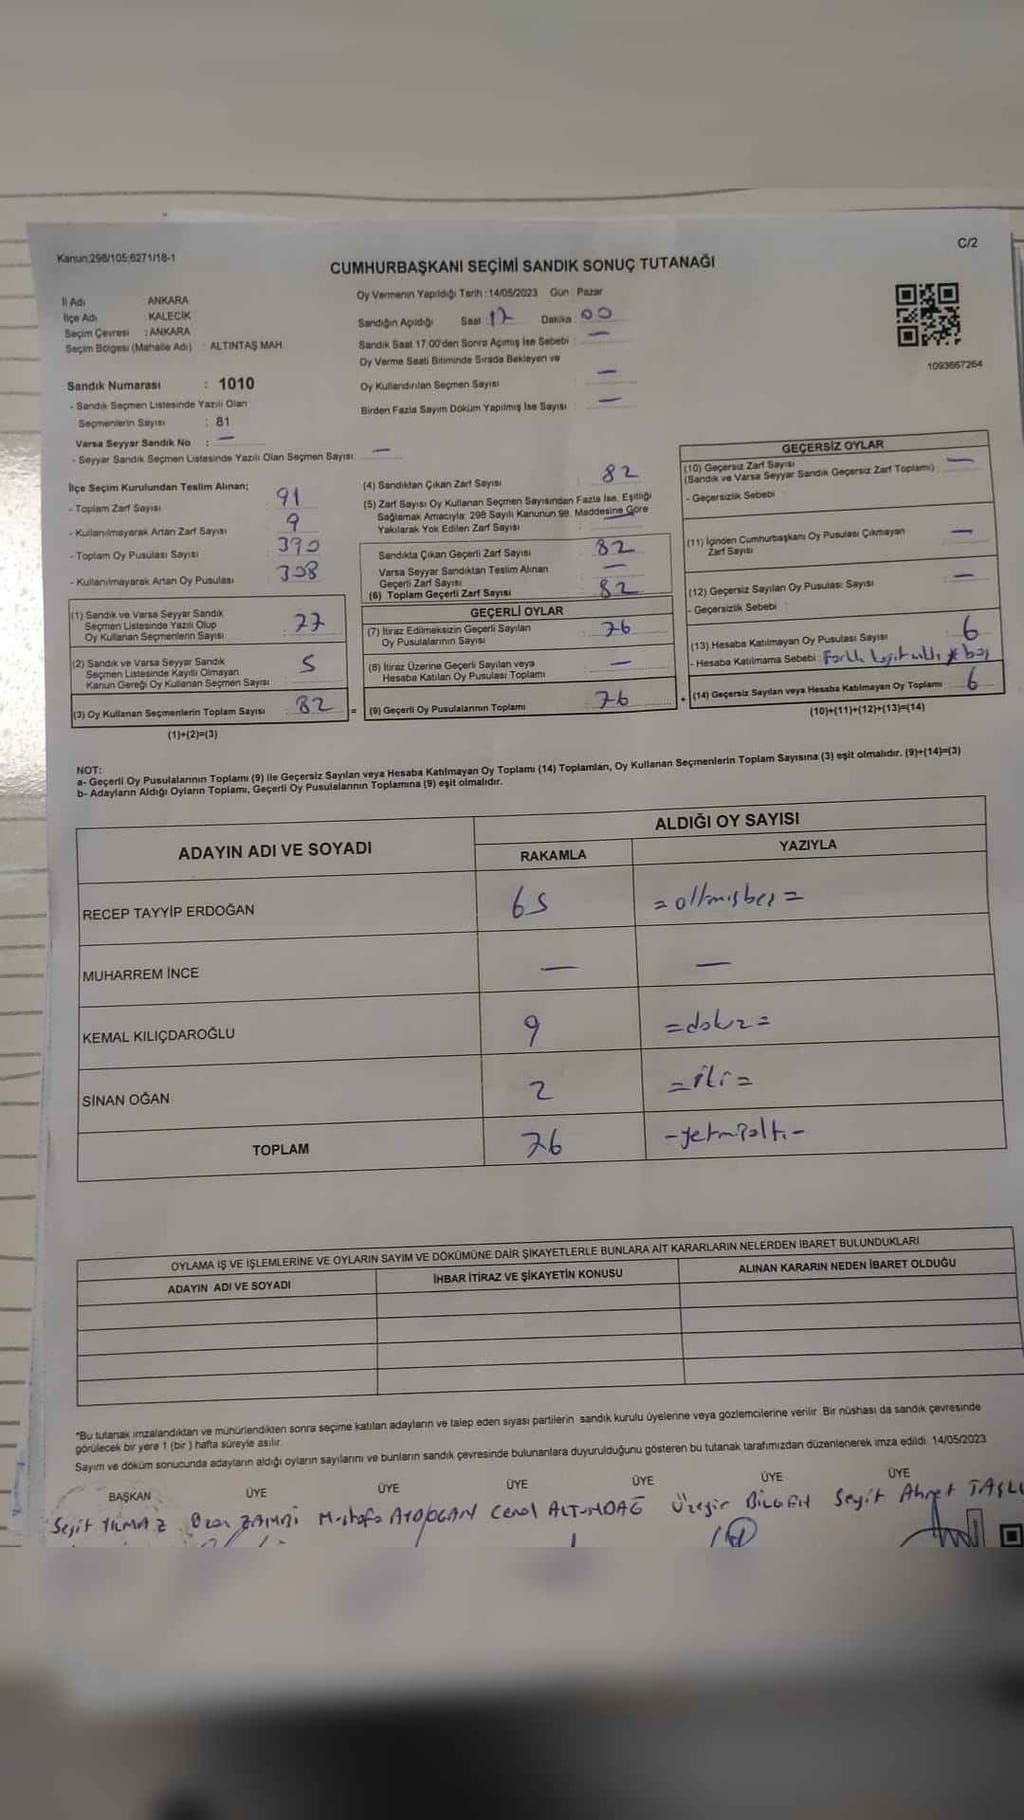 Kanun:298/105;6271/18-1
C/2
CUMHURBAŞKANI SEÇİMİ SANDIK SONUÇ TUTANAĞI
İl Adı ANKARA
İlçe Adı KALECİK
Seçim Çevresi : ANKARA
Seçim Bölgesi (Mahalle Adı) : ALTINTAŞ MAH.
Sandık Numarası : 1010
- Sandık Seçmen Listesinde Yazılı Olan
Seçmenlerin Sayısı : 81
Varsa Seyyar Sandık No : —
- Seyyar Sandık Seçmen Listesinde Yazılı Olan Seçmen Sayısı: —
Oy Vermenin Yapıldığı Tarih :14/05/2023 Gün : Pazar
Sandığın Açıldığı Saat 17 Dakika 00
Sandık Saat 17:00'den Sonra Açmış İse Sebebi —
Oy Verme Saati Bitiminde Sırada Bekleyen ve
Oy Kullandırılan Seçmen Sayısı —
Birden Fazla Sayım Döküm Yapılmış İse Sayısı —
1093667264
İlçe Seçim Kurulundan Teslim Alınan;
- Toplam Zarf Sayısı 91
- Kullanılmayarak Artan Zarf Sayısı 9
- Toplam Oy Pusulası Sayısı 390
- Kullanılmayarak Artan Oy Pusulası 308
(1) Sandık ve Varsa Seyyar Sandık
Seçmen Listesinde Yazılı Olup
Oy Kullanan Seçmenlerin Sayısı : 77
(2) Sandık ve Varsa Seyyar Sandık
Seçmen Listesinde Kayıtlı Olmayan
Kanun Gereği Oy Kullanan Seçmen Sayısı : 5
(3) Oy Kullanan Seçmenlerin Toplam Sayısı : 82 =
(1)+(2)=(3)
(4) Sandıktan Çıkan Zarf Sayısı 82
(5) Zarf Sayısı Oy Kullanan Seçmen Sayısından Fazla İse, Eşitliği
Sağlamak Amacıyla; 298 Sayılı Kanunun 98. Maddesine Göre
Yakılarak Yok Edilen Zarf Sayısı : —
Sandıkta Çıkan Geçerli Zarf Sayısı 82
Varsa Seyyar Sandıktan Teslim Alınan
Geçerli Zarf Sayısı —
(6) Toplam Geçerli Zarf Sayısı 82
GEÇERLİ OYLAR
(7) İtiraz Edilmeksizin Geçerli Sayılan
Oy Pusulalarının Sayısı 76
(8) İtiraz Üzerine Geçerli Sayılan veya
Hesaba Katılan Oy Pusulası Toplamı —
(9) Geçerli Oy Pusulalarının Toplamı 76 +
GEÇERSİZ OYLAR
(10) Geçersiz Zarf Sayısı —
(Sandık ve Varsa Seyyar Sandık Geçersiz Zarf Toplamı)
- Geçersizlik Sebebi :
(11) İçinden Cumhurbaşkanı Oy Pusulası Çıkmayan
Zarf Sayısı —
(12) Geçersiz Sayılan Oy Pusulası Sayısı —
- Geçersizlik Sebebi :
(13) Hesaba Katılmayan Oy Pusulası Sayısı 6
- Hesaba Katılmama Sebebi : boş
(14) Geçersiz Sayılan veya Hesaba Katılmayan Oy Toplamı 6
(10)+(11)+(12)+(13)=(14)
NOT:
a- Geçerli Oy Pusulalarının Toplamı (9) ile Geçersiz Sayılan veya Hesaba Katılmayan Oy Toplamı (14) Toplamları, Oy Kullanan Seçmenlerin Toplam Sayısına (3) eşit olmalıdır. (9)+(14)=(3)
b- Adayların Aldığı Oyların Toplamı, Geçerli Oy Pusulalarının Toplamına (9) eşit olmalıdır.
ADAYIN ADI VE SOYADI ALDIĞI OY SAYISI
RAKAMLA YAZIYLA
RECEP TAYYİP ERDOĞAN 65 =altmışbeş=
MUHARREM İNCE — —
KEMAL KILIÇDAROĞLU 9 =dokuz=
SİNAN OĞAN 2 =iki=
TOPLAM 76 -yetmişaltı-
OYLAMA İŞ VE İŞLEMLERİNE VE OYLARIN SAYIM VE DÖKÜMÜNE DAİR ŞİKAYETLERLE BUNLARA AİT KARARLARIN NELERDEN İBARET BULUNDUKLARI
ADAYIN ADI VE SOYADI İHBAR İTİRAZ VE ŞİKAYETİN KONUSU ALINAN KARARIN NEDEN İBARET OLDUĞU
*Bu tutanak imzalandıktan ve mühürlendikten sonra seçime katılan adayların ve talep eden siyasi partilerin sandık kurulu üyelerine veya gözlemcilerine verilir. Bir nüshası da sandık çevresinde
görülecek bir yere 1 (bir) hafta süreyle asılır.
Sayım ve döküm sonucunda adayların aldığı oyların sayılarını ve bunların sandık çevresinde bulunanlara duyurulduğunu gösteren bu tutanak tarafımızdan düzenlenerek imza edildi. 14/05/2023
BAŞKAN ÜYE ÜYE ÜYE ÜYE ÜYE ÜYE
Seyit YILMAZ Ozan Mustafa AYDOGAN Cemal ALTUNDAĞ Üzeyir BİLGEN Seyit Ahmet TAŞLI